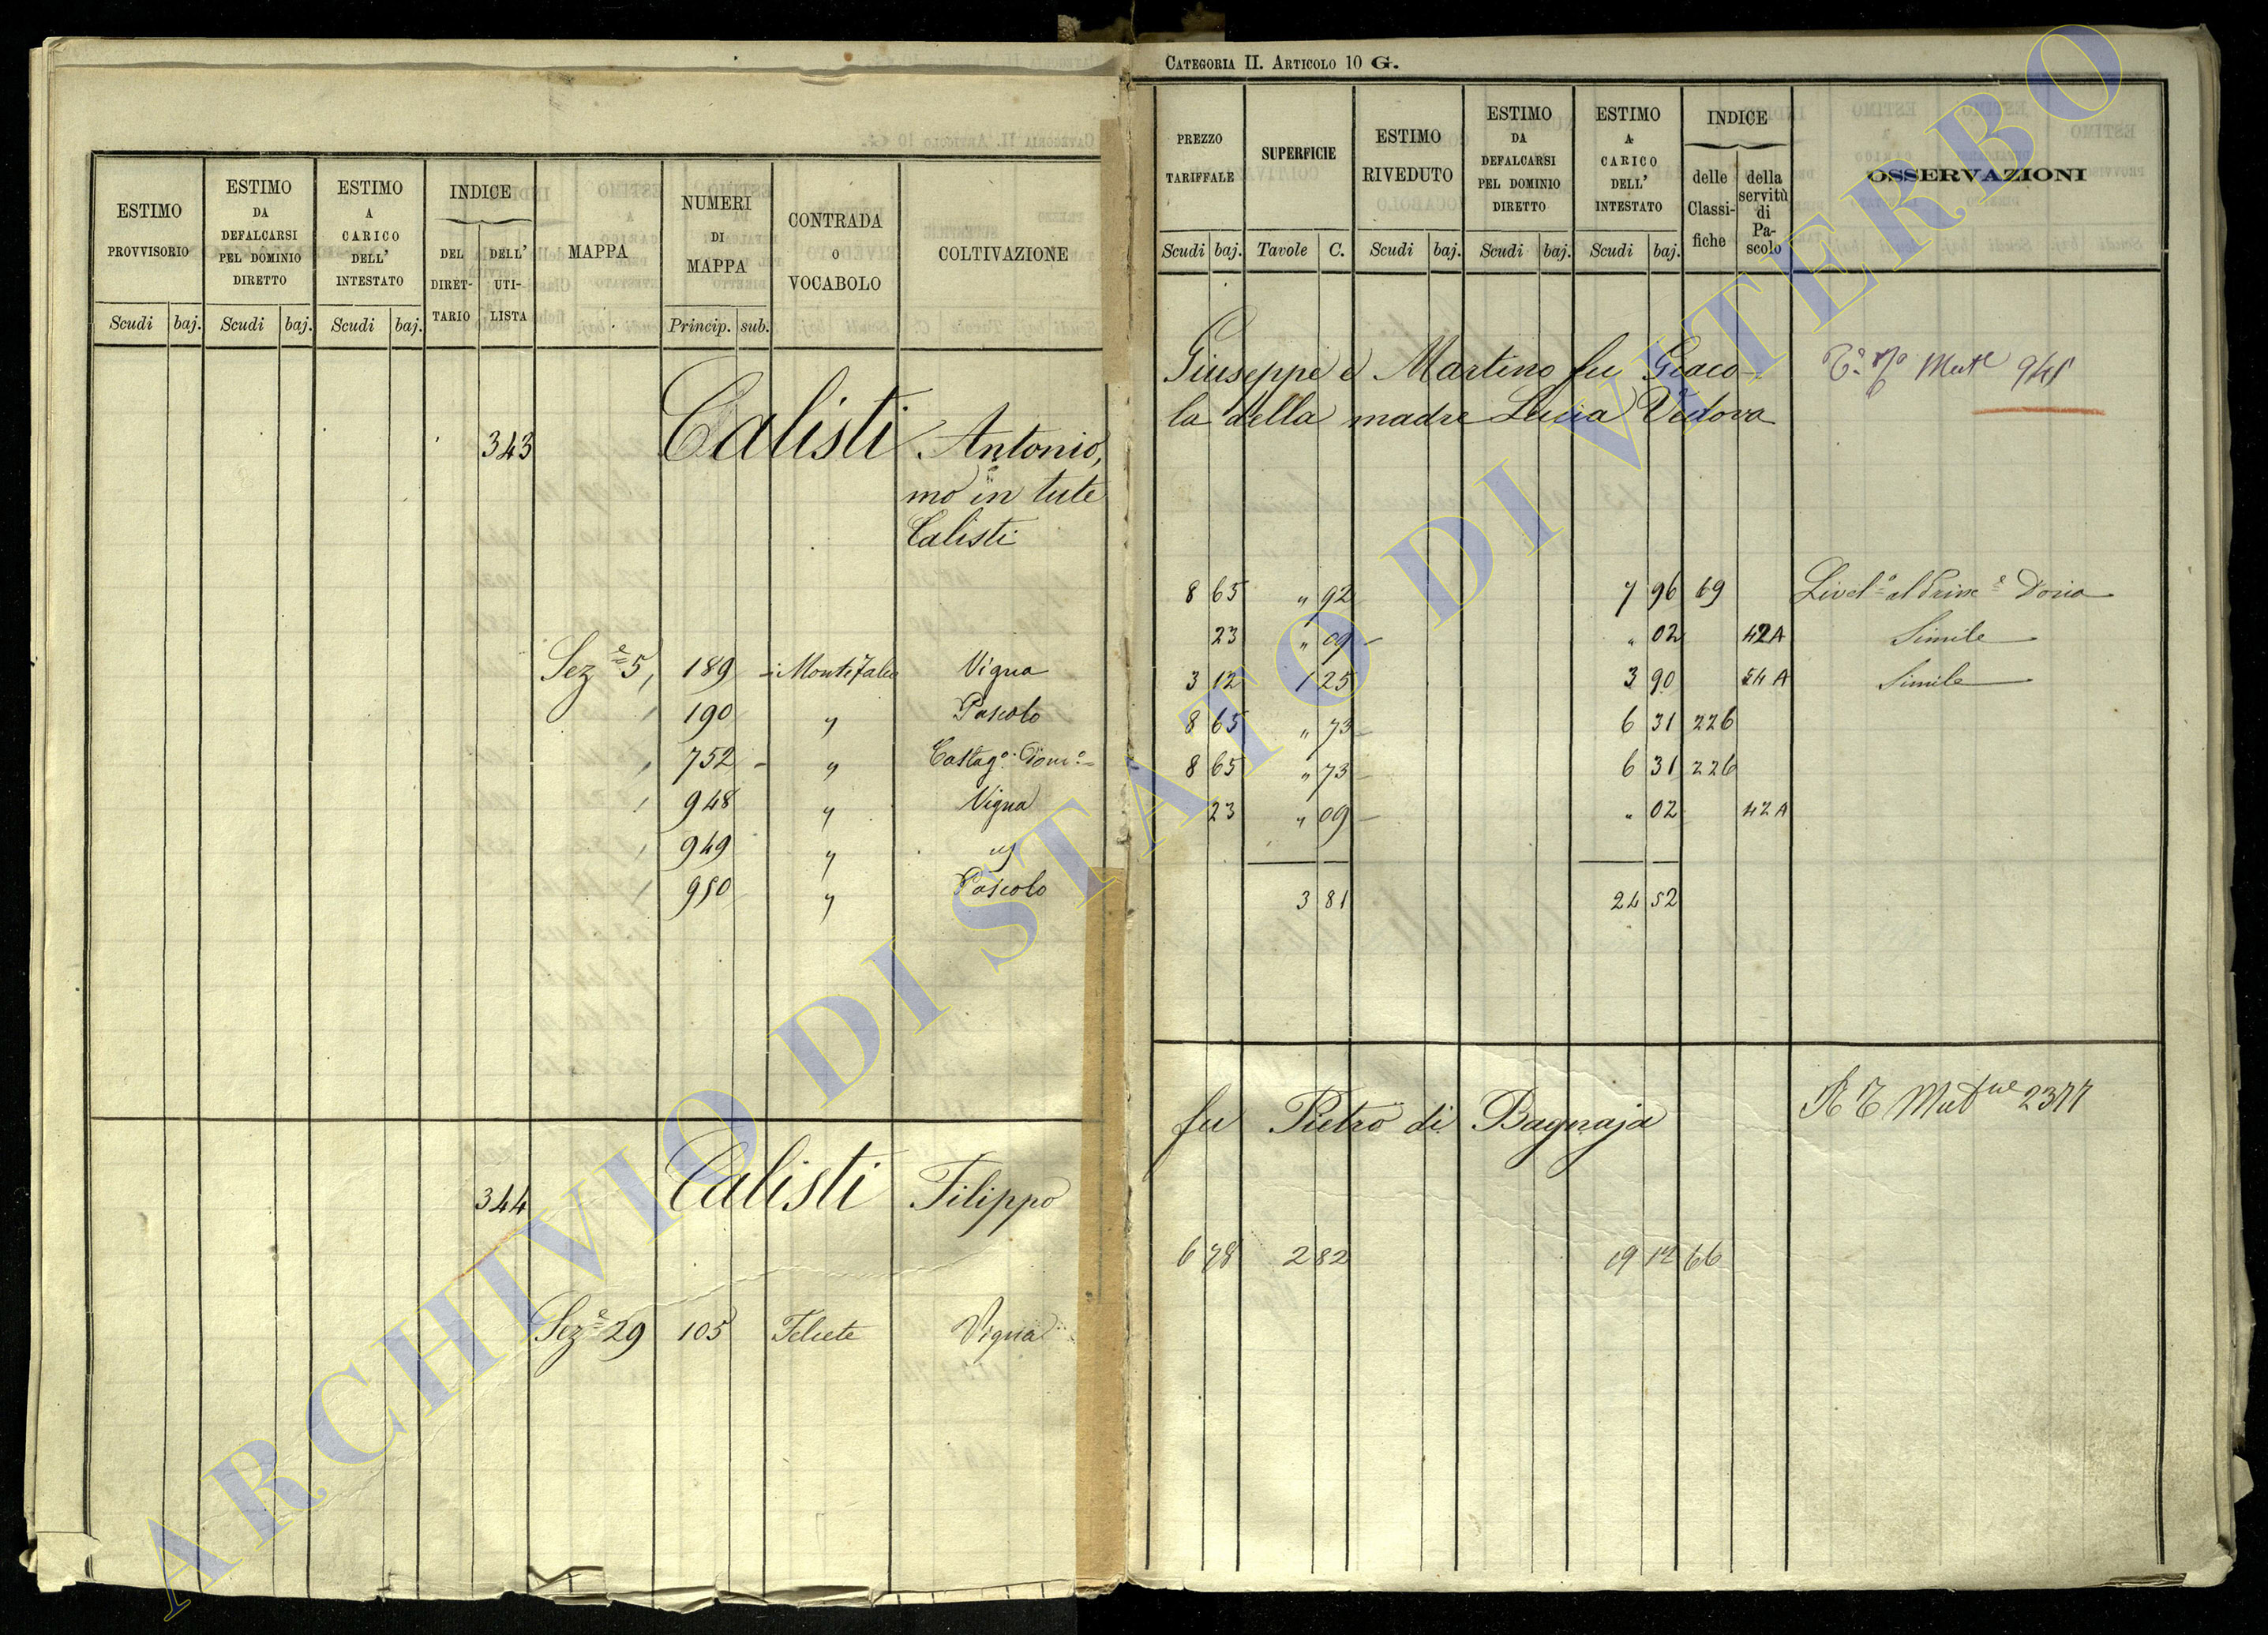 CATEGORIA II. ARTICOLO 10 G.
ESTIMO PROVVISORIO
ESTIMO DA DEFALCARSI PEL DOMINIO DIRETTO
ESTIMO A CARICO DELL' INTESTATO
INDICE
DEL DIRET-TARIO
DELL' UTI-LISTA
MAPPA
NUMERI DI MAPPA
CONTRADA O VOCABOLO
COLTIVAZIONE
Scudi baj. Scudi baj. Scudi baj. Princip. sub.
343 Calisti Antonio,
mo in tute
Calisti
Seze 5, 189 Vigna
190 " Pascolo
752 " Castago. Domo.
948 " Vigna
949 " "
950 " Pascolo
344 Calisti Filippo
Seze 29 105 Felcete Vigna
PREZZO TARIFFALE
SUPERFICIE
ESTIMO RIVEDUTO
ESTIMO DA DEFALCARSI PEL DOMINIO DIRETTO
ESTIMO A CARICO DELL' INTESTATO
INDICE
delle Classi-fiche
della servitù di Pa-scolo
OSSERVAZIONI
Scudi baj. Tavole C. Scudi baj. Scudi baj. Scudi baj.
Giuseppe e Martino fu Giaco-
la della madre Lucia Vedova
8 65 " 92 7 96 69 Livelo al Prine Doria
23 " 09 " 02 42A Simile
3 12 1 25 3 90 54 A Simile
8 65 " 73 6 31 226
8 65 " 73 6 31 226
23 " 09 " 02 42A
3 81 24 52
fu Pietro di Bagnaja
6 78 2 82 19 12 66
ARCHIVIO DI STATO DI VITERBO